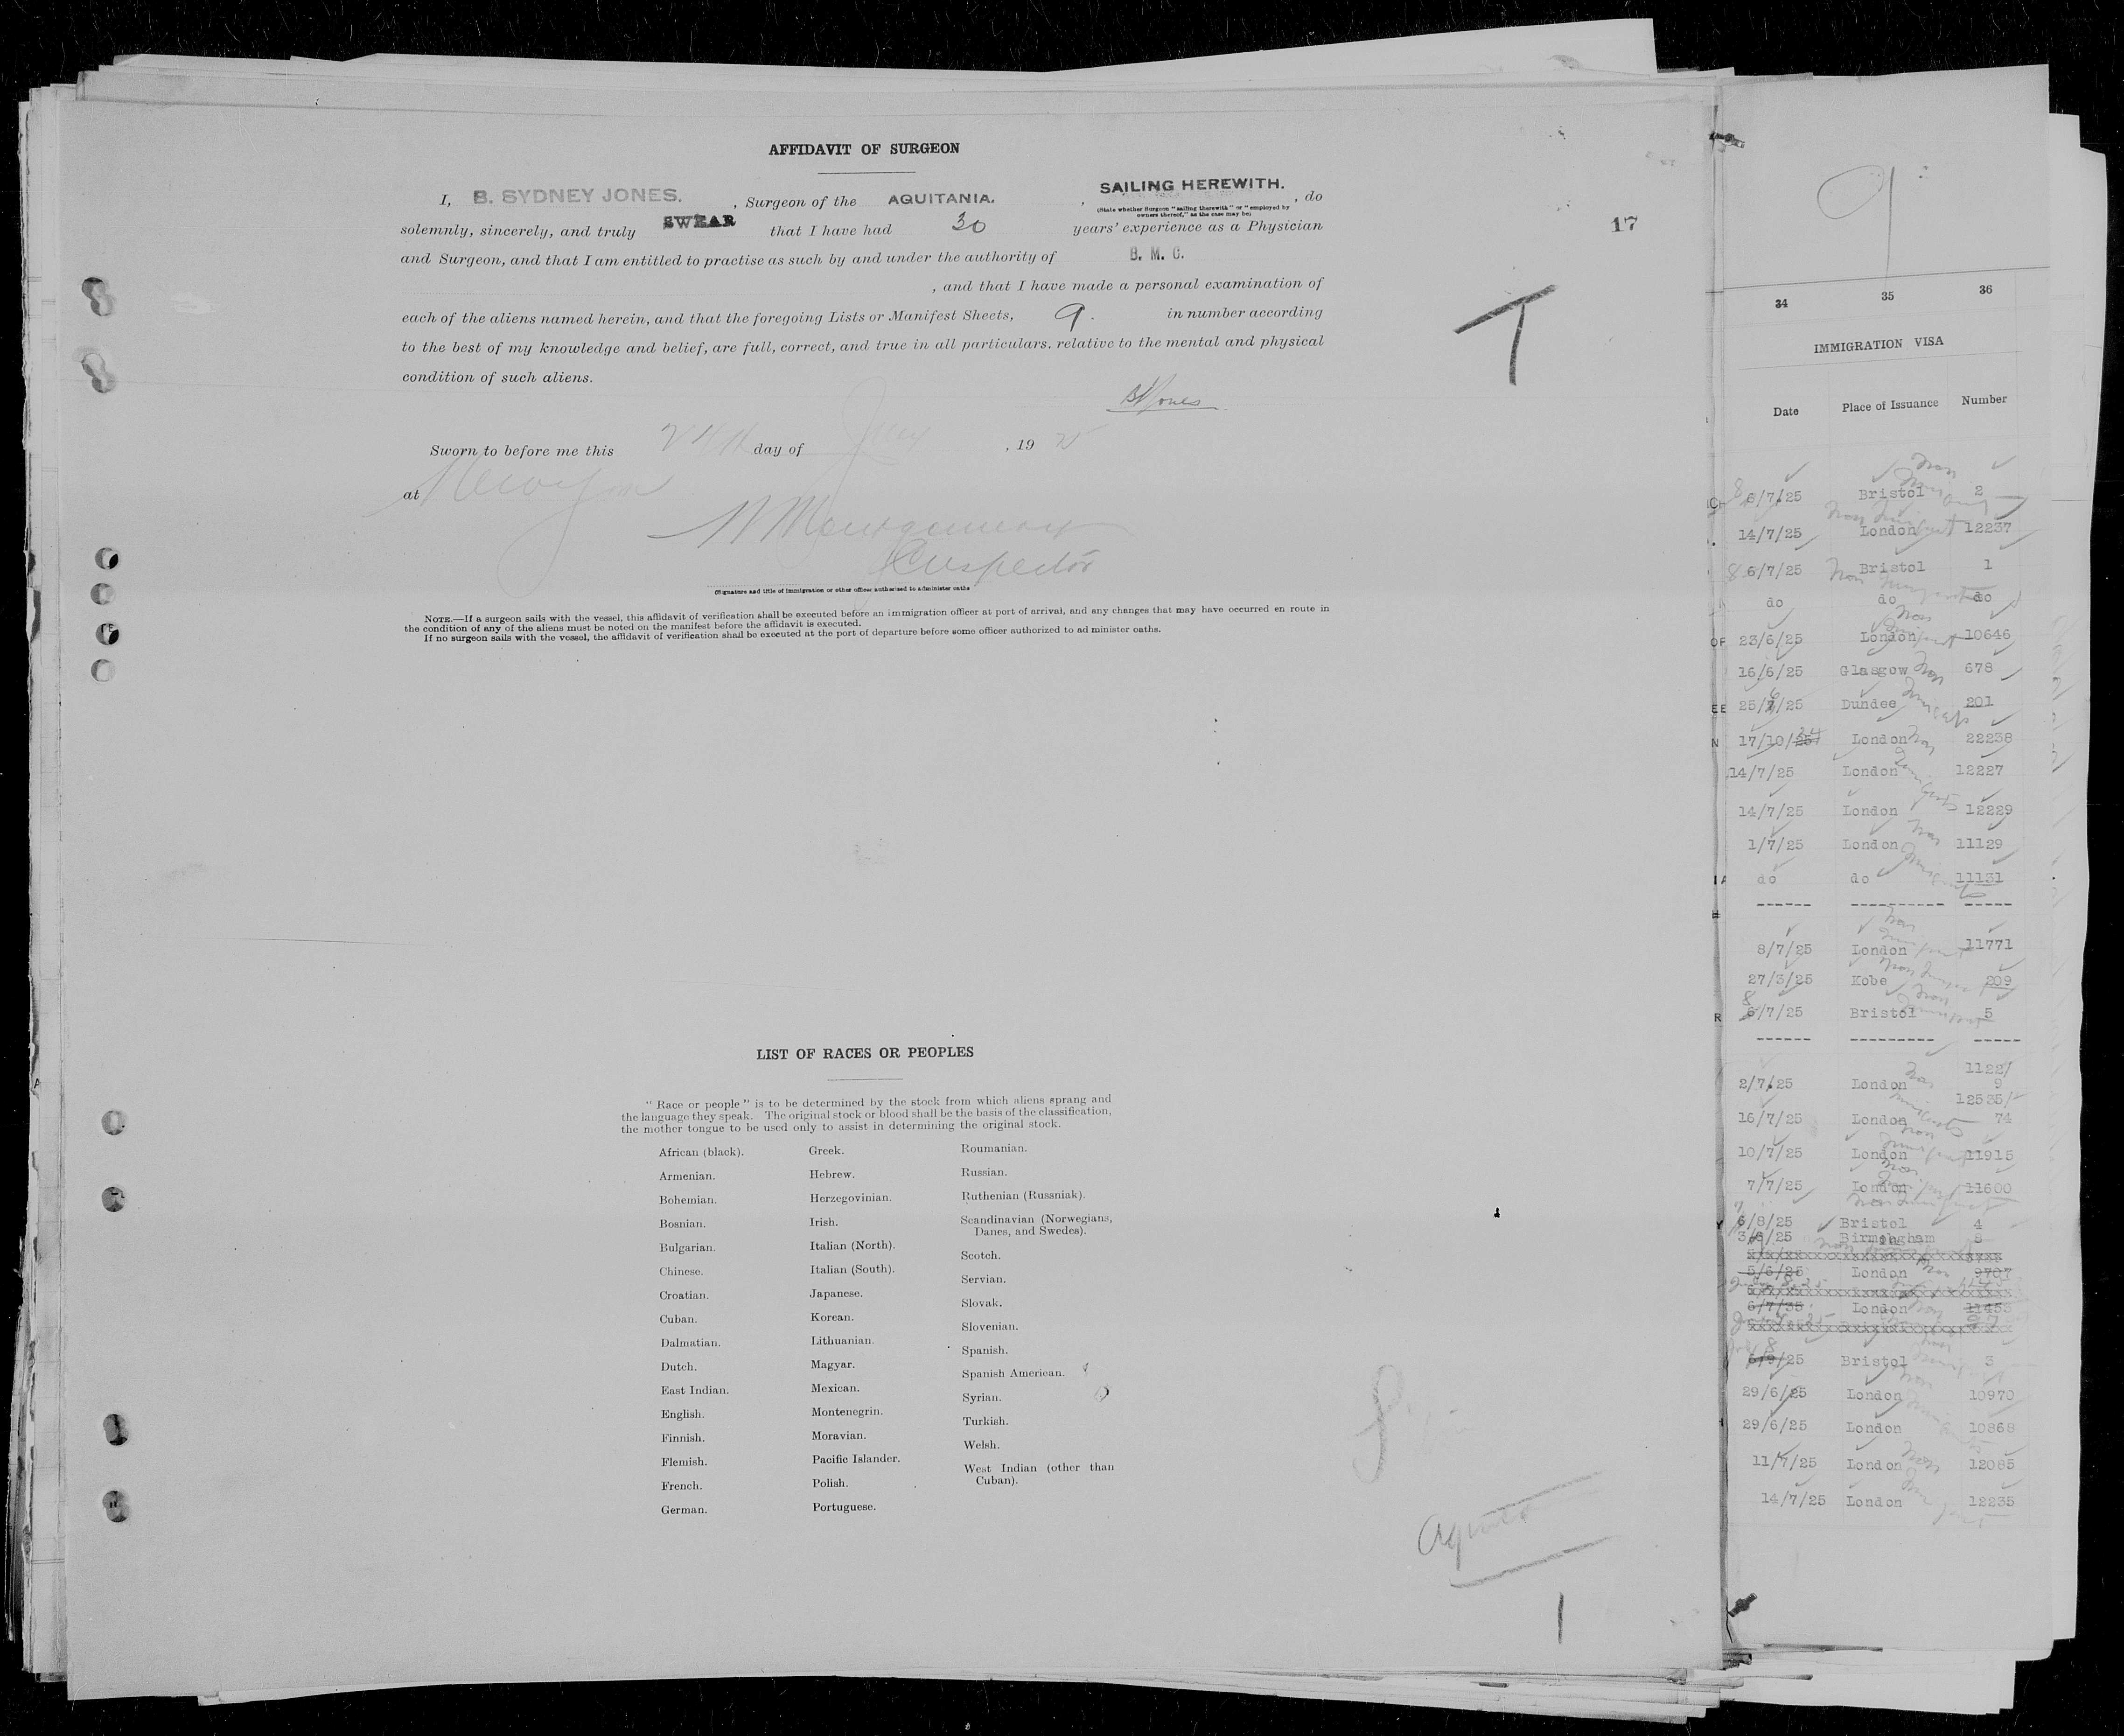 AFFIDAVIT OF SURGEON
I, B. SYDNEY JONES. , Surgeon of the AQUITANIA. , SAILING HEREWITH. , do
(State whether Surgeon "sailing therewith" or "employed by
owners thereof," as the case may be)
solemnly, sincerely, and truly SWEAR that I have had 30 years' experience as a Physician
and Surgeon, and that I am entitled to practise as such by and under the authority of B. M. C.
, and that I have made a personal examination of
each of the aliens named herein, and that the foregoing Lists or Manifest Sheets, 9. in number according
to the best of my knowledge and belief, are full, correct, and true in all particulars. relative to the mental and physical
condition of such aliens.
BSJones
Sworn to before me this 24th day of July , 19 25
at New York
Montgomery
Inspector
(Signature and title of immigration or other officer authorised to administer oaths
NOTE.—If a surgeon sails with the vessel, this affidavit of verification shall be executed before an immigration officer at port of arrival, and any changes that may have occurred en route in
the condition of any of the aliens must be noted on the manifest before the affidavit is executed.
If no surgeon sails with the vessel, the affidavit of verification shall be executed at the port of departure before some officer authorized to ad minister oaths.
17
T
LIST OF RACES OR PEOPLES
"Race or people" is to be determined by the stock from which aliens sprang and
the language they speak. The original stock or blood shall be the basis of the classification,
the mother tongue to be used only to assist in determining the original stock.
African (black).
Armenian.
Bohemian.
Bosnian.
Bulgarian.
Chinese.
Croatian.
Cuban.
Dalmatian.
Dutch.
East Indian.
English.
Finnish.
Flemish.
French.
German.
Greek.
Hebrew.
Herzegovinian.
Irish.
Italian (North).
Italian (South).
Japanese.
Korean.
Lithuanian.
Magyar.
Mexican.
Montenegrin.
Moravian.
Pacific Islander.
Polish.
Portuguese.
Roumanian.
Russian.
Ruthenian (Russniak).
Scandinavian (Norwegians,
Danes, and Swedes).
Scotch.
Servian.
Slovak.
Slovenian.
Spanish.
Spanish American.
Syrian.
Turkish.
Welsh.
West Indian (other than
Cuban).
1
9
34 35 36
IMMIGRATION VISA
Date Place of Issuance Number
6/7/25 Bristol 2
14/7/25 London 12237
6/7/25 Bristol 1
do do do
23/6/25 London 10646
16/6/25 Glasgow 678
25/6/25 Dundee 201
17/10/24 London 22238
14/7/25 London 12227
14/7/25 London 12229
1/7/25 London 11129
do do 11131
8/7/25 London 11771
27/3/25 Kobe 209
8/7/25 Bristol 5
2/7/25 London 1122/
9
12535/
16/7/25 London 74
10/7/25 London 11915
7/7/25 London 11600
6/8/25 Bristol 4
25 Birmingham 8
5/6/25 London 9707
6/7/35 London 11453
25 Bristol 3
29/6/25 London 10970
29/6/25 London 10868
11/7/25 London 12085
14/7/25 London 12235